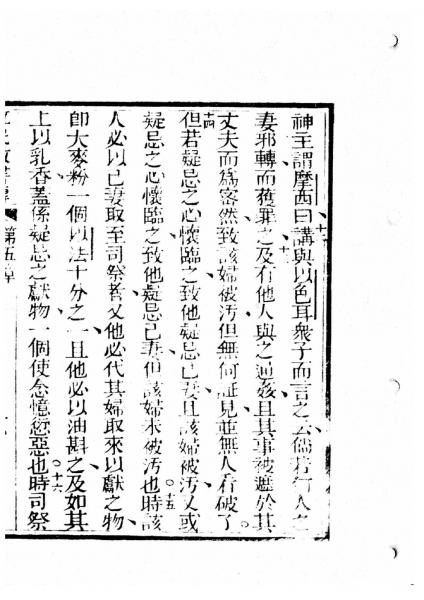 神主謂摩西曰十二講與以色耳衆子而言之云倘若何人之
妻邪轉而獲罪之十三及有他人與之通姦且其事被遮於其
丈夫而為密然致該婦被污但無何証見並無人看破了。
十四但若疑忌之心懷臨之致他疑忌己妻且該婦被污又或
疑忌之心懷臨之致他疑忌己妻但該婦未被污也。十五時該
人必以己妻取至司祭者又他必代其婦取來以獻之物
卽大麥粉一個以法十分之一且他必以油斟之及如其
上以乳香蓋係疑忌之獻物一個使念憶愆惡也。十六時司祭
第五章